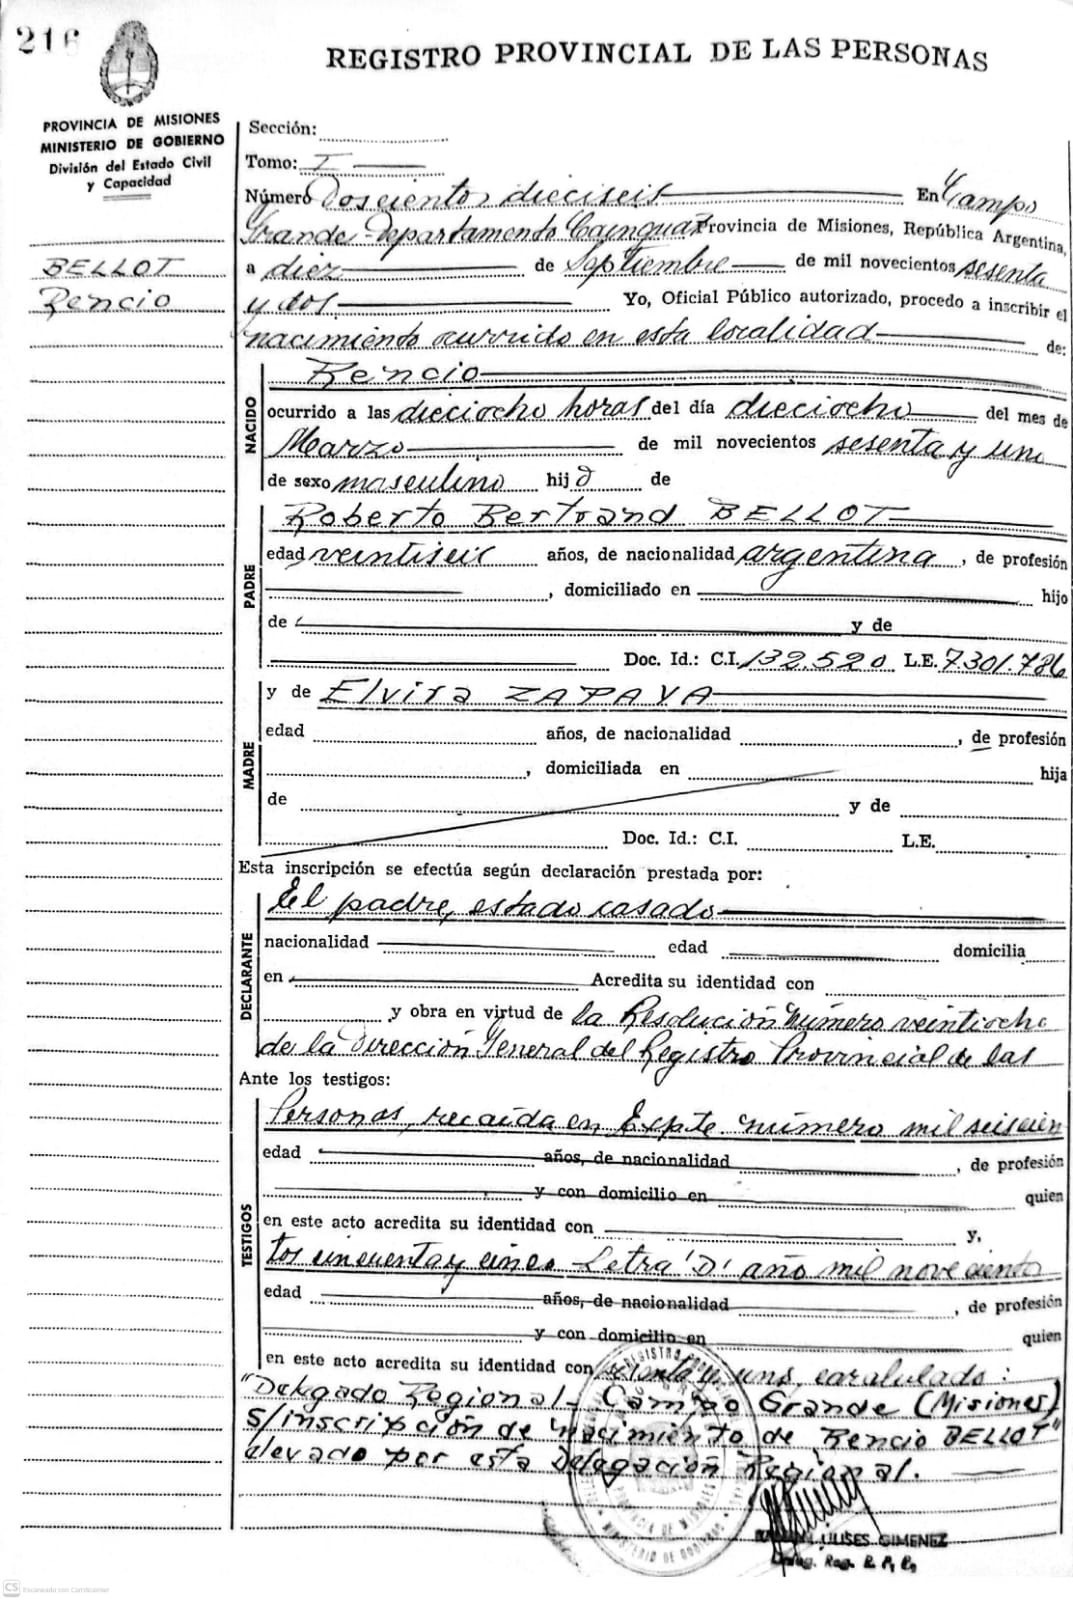 216
REGISTRO PROVINCIAL DE LAS PERSONAS
PROVINCIA DE MISIONES
MINISTERIO DE GOBIERNO
División del Estado Civil
y Capacidad
BELLOT
Rencio
Sección:
Tomo: I
Número Doscientos dieciseis En Campo
Grande Departamento Cainguas Provincia de Misiones, República Argentina,
a diez de Septiembre de mil novecientos sesenta
y dos Yo, Oficial Público autorizado, procedo a inscribir el
nacimiento ocurrido en esta localidad de:
NACIDO
Rencio
ocurrido a las dieciocho horas del día dieciocho del mes de
Marzo de mil novecientos sesenta y uno
de sexo masculino hijo de
PADRE
Roberto Bertrand BELLOT
edad veintiseis años, de nacionalidad argentina, de profesión
, domiciliado en hijo
de y de
Doc. Id.: C.I. 132.520 L.E. 7.301.786
MADRE
y de Elvira ZAPAYA
edad años, de nacionalidad , de profesión
, domiciliada en hija
de y de
Doc. Id.: C.I. L.E.
Esta inscripción se efectúa según declaración prestada por:
DECLARANTE
El padre, estado casado
nacionalidad edad domicilia
en Acredita su identidad con
y obra en virtud de la Resolución número veintiocho
de la Dirección General del Registro Provincial de las
Ante los testigos:
TESTIGOS
Personas, recaída en Expte. número mil seiscien
edad años, de nacionalidad , de profesión
y con domicilio en quien
en este acto acredita su identidad con y,
tos cincuenta y cinco Letra 'D' año mil novecientos
edad años, de nacionalidad , de profesión
y con domicilio en quien
en este acto acredita su identidad con sesenta y uno, caratulado:
"Delegado Regional - Campo Grande (Misiones)
s/inscripción de Nacimiento de Rencio BELLOT"
elevado por esta Delegación Regional.
PROVINCIA DE MISIONES
MINISTERIO DE GOBIERNO
ULISES GIMENEZ
Deleg. Reg. R. P. P.
CS Escaneado con CamScanner